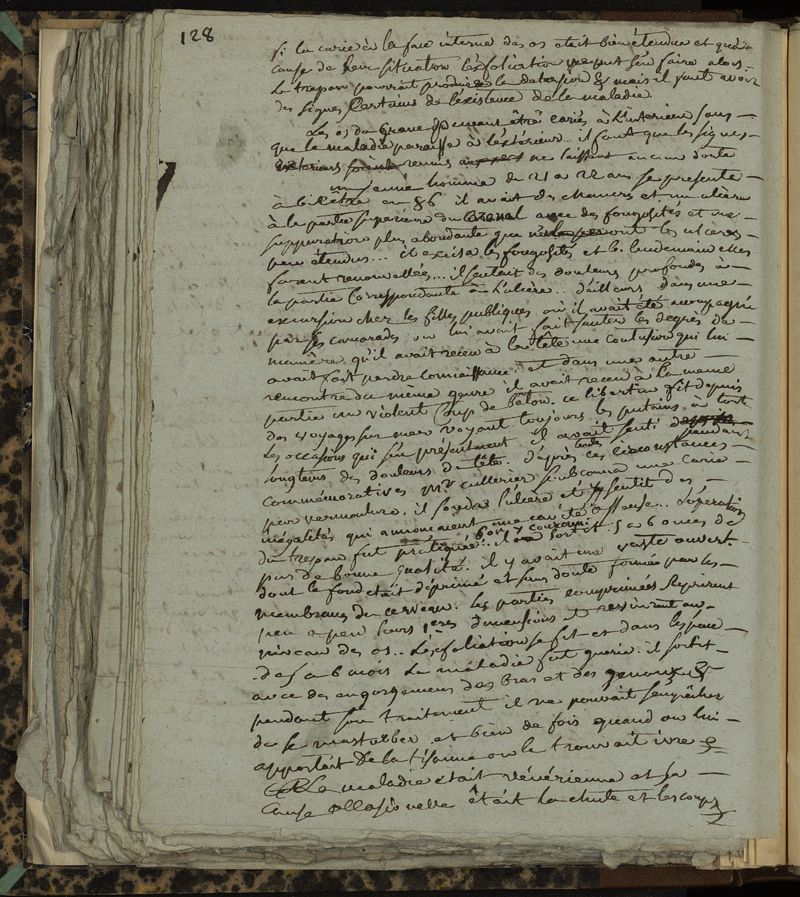 128
si la carie à la face interne des os était bien étendue et qu'à
cause de leur situation l'exfoliation ne put s'en faire alors
le trepan pourrait produire la détersion & mais il faut avoir
des signes certains de l'existence de la maladie
Les os du crane peuvent être cariés à l'interieur sans
que la maladie paraisse à l'exterieur .. il faut que les signes
reunis ne laissent aucun doute
un jeune homme de 21 a 22 ans se presenta
a bicetre en 86 il avait des chancres et un ulcere
à la partie superieure du avec des fongosités et une
suppuration plus abondante que les ulceres
peu étendus ... il excisa les fongosités et le lendemain elles
furent renouvellées ... il sentait des douleurs profondes à
la partie correspondante à l'ulcere .. d'ailleurs dans une
excursion chez les filles publiques où il avait été accompagné
par ses camarades on lui avait fait sauter les degrés de
manière qu'il avait recu à la tête une contusion qui lui
avait fait perdre connaissance et dans une autre
rencontre du même genre il avait recu à la meme
partie un violent coup de bâton. ce libertin fit depuis
des voyages sur mer voyant toujours les putains à tort
les occasions qui s'en présentaient il avait senti pendant
longtems des douleurs de tête. d'après ces circonstances
commémoratives Mr cullerier soubconna une carie
par vermoulure. il sonda l'ulcere et y sentit des
inégalités qui annoncaient une cavité osseuse .. L'opération
du trepan fut pratiquée. il sortit 5 a 6 onces de
pus de bonne qualité. il y avait une vaste ouvert-
dont le fond était déprimé et sans doute formée par les
membranes du cerveau. les parties comprimées reprirent
peu a peu leurs 1eres dimensions et revinrent au
niveau des os .. L'exfoliation se fit et dans l'espace
de 5 a 6 mois la maladie fut guerie. il sortit
avec des engorgemens des bras et des genoux &
pendant son traitement il ne pouvait s'empêcher
de se masturber et bien de fois quand on lui
apportait de la tisanne on le trouvait ivre
La maladie était vénérienne et sa
cause occasionelle était la chute et les coups